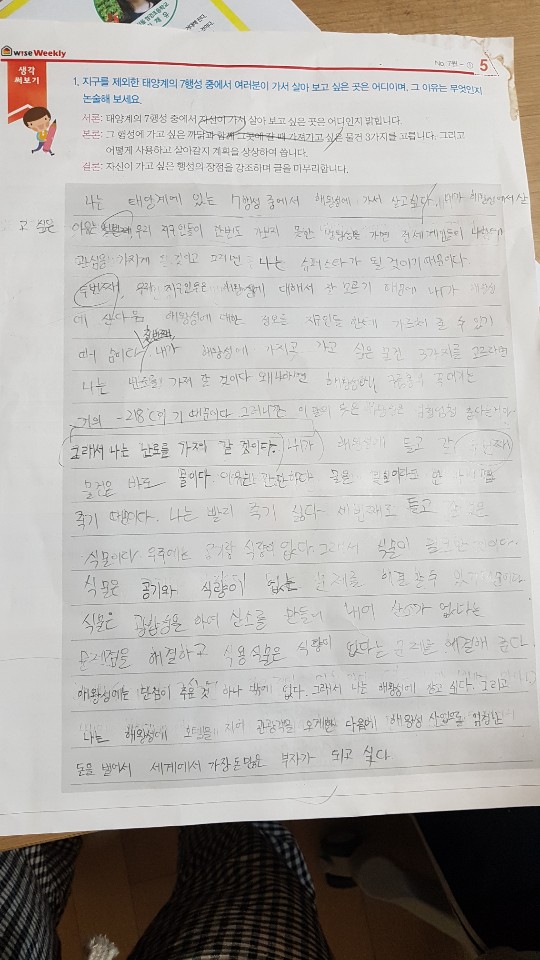 wise Weekly
No. 7권 - ① 5
생각
써보기
1. 지구를 제외한 태양계의 7행성 중에서 여러분이 가서 살아 보고 싶은 곳은 어디이며, 그 이유는 무엇인지
논술해 보세요.
서론: 태양계의 7행성 중에서 자신이 가서 살아 보고 싶은 곳은 어디인지 밝힙니다.
본론: 그 행성에 가고 싶은 까닭과 함께 그곳에 갈 때 가져가고 싶은 물건 3가지를 고릅니다. 그리고
어떻게 사용하고 살아갈지 계획을 상상하여 씁니다.
결론: 자신이 가고 싶은 행성의 장점을 강조하며 글을 마무리합니다.
나는 태양계에 있는 7행성 중에서 해왕성에 가서 살고싶다. 내가 해왕성에서 살
고 싶은 이유는 첫번째 우리 지구인들이 한번도 가보지 못한 해왕성을 가면 전세계인들이
관심을 가지게 될 것이고 그러면 나는 슈퍼스타가 될 것이기 때문이다.
두번째, 우리 지구인들은 해왕성에 대해서 잘 모르기 때문에 내가 해왕성
에 산다음 해왕성에 대한 정보를 지구인들 한테 가르쳐 줄 수 있기
때문이다. 첫번째 내가 해왕성에 가지고 가고 싶은 물건 3가지를 고르라면
나는 난로를 가져 갈 것이다 왜냐하면 해왕성의
거의 -218℃이기 때문이다 그러니깐
그래서 나는 난로를 가져 갈 것이다. 내가 해왕성에 들고 갈 두번째
물건은 바로 물이다. 이유는 간단하다 물을
죽기 때문이다. 나는 빨리 죽기 싫다. 세번째로 들고 갈 것은
식물이다. 우주에는 공기랑 식량이 없다. 그래서 식물이 필요한 것이다.
식물은 공기와 식량이 없는 문제를 해결할수 있기 때문이다
식물은 광합성을 하여 산소를 만들어 내어 산소가 없다는
문제점을 해결하고 식용식물은 식량이 없다는 문제를 해결해 준다.
해왕성에는 단점이 추운 것 하나 밖에 없다. 그래서 나는 해왕성에 살고 싶다. 그리고
나는 해왕성에 호텔을 지어 관광객을 오게한 다음에 해왕성 산업으로 엄청난
돈을 벌어서 세계에서 가장돈많은 부자가 되고 싶다